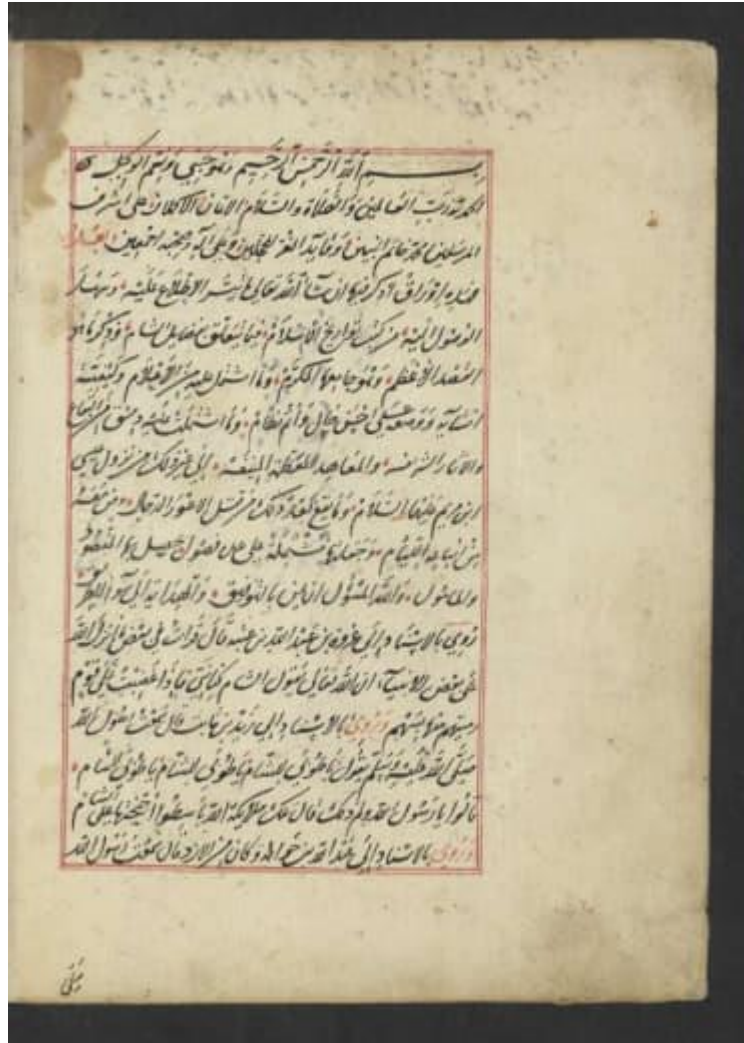 بسم الله الرحمن الرحيم وهو حسبي ونعم الوكيل
الحمد لله رب العالمين والصلاة والسلام الاتمان الاكملان على اشرف
المرسلين محمد خاتم النبيين وقايد الغر المحجلين وعلى اله وصحبه اجمعين
فهذه اوراق اذكر فيها ان شآ الله تعالى ما تيسر الاطلاع عليه
الوصول اليه من كتب تواريخ الاسلام فيما يتعلق بفضايل الشام وذكر بنا
المعبد الاعظم وهو جامعها المكرم وما اشتمل عليه من الاعلام وكيفية
انشايه ووضعه على احسن حال واتم نظام وما اشتملت عليه دمشق من البقاع
والاثار الشريفة والمعاهد المعظمة المنيفة الى غير ذلك من نزول عيسى
ابن مريم عليهما السلام وما يقع بعد ذلك من قتل الاعور الدجال ومن معه
مشتملة على فصول
والله المسئول بالتوفيق والهداية الى
روي بالاسناد الى عروة بن عبد الله بن قال قرات في بعض ما انزل الله
على بعض الانبيآ ان الله تعالى يقول الشام كنانتي فاذا غضبت على قوم
رميتهم منها بسهم وروي بالاسناد الى زيد بن ثابت قال سمعت رسول الله
صلى الله عليه وسلم يقول يا طوبى للشام يا طوبى للشام يا طوبى للشام
قالوا يا رسول الله ولم ذلك قال تلك ملايكة الله باسطوا اجنحتها على الشام
وروي بالاسناد الى عبد الله بن حوالة وكان من الازد قال سمعت رسول الله
صلى